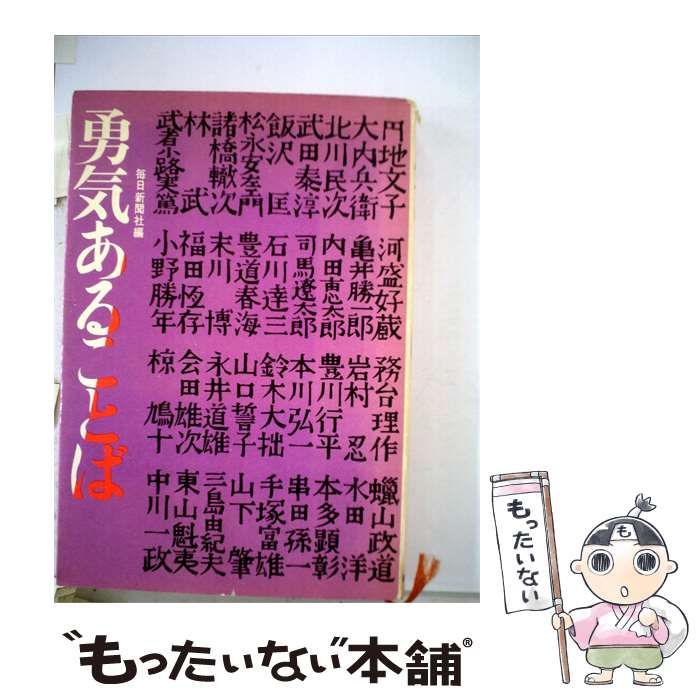 円地文子 河盛好蔵 務台理作 蠟山政道
大内兵衛 亀井勝一郎 岩村忍 水田洋
北川民次 内田恵太郎 豊川行平 本多顕彰
武田泰淳 司馬遼太郎 本川弘一 串田孫一
飯沢匡 石川達三 鈴木大拙 手塚富雄
松永安左エ門 豊道春海 山口誓子 山下肇
諸橋轍次 末川博 永井道雄 三島由紀夫
林武 福田恆存 会田雄次 東山魁夷
武者小路実篤 小野勝年 椋鳩十 中川一政
毎日新聞社編
勇気あることば
もったいない
"もったいない"本舗®